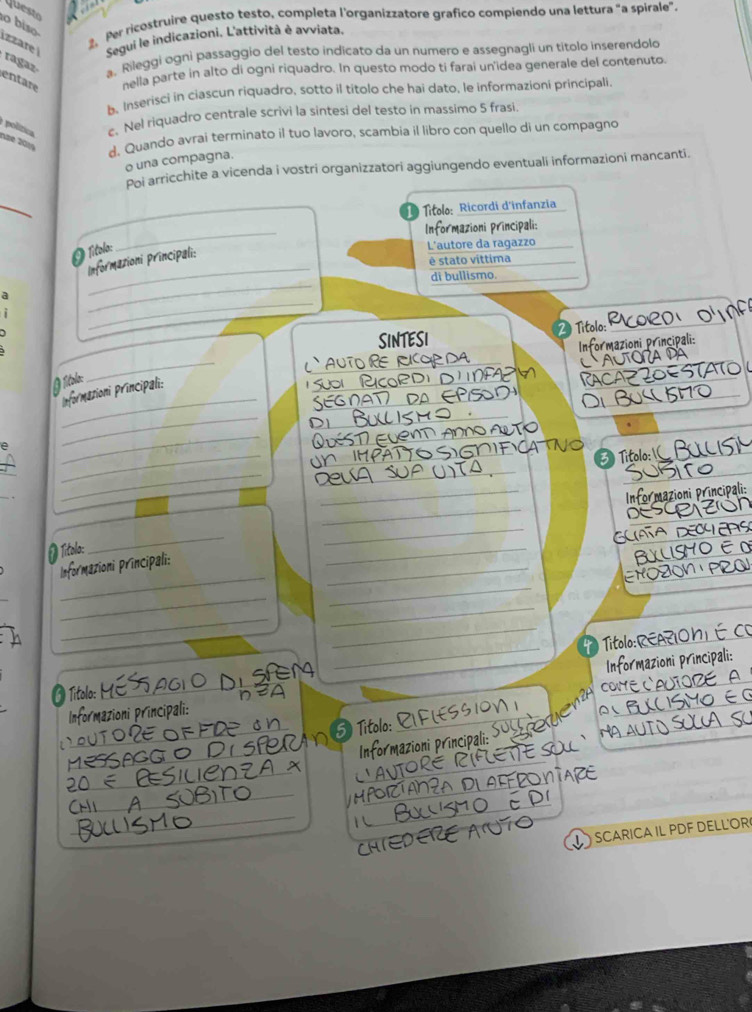 questo
o biso-
izzare i
ragaz-
entare
2. Per ricostruire questo testo, completa l'organizzatore grafico compiendo una lettura "a spirale".
Segui le indicazioni. L'attività è avviata.
a. Rileggi ogni passaggio del testo indicato da un numero e assegnagli un titolo inserendolo
nella parte in alto di ogni riquadro. In questo modo ti farai un'idea generale del contenuto.
b. Inserisci in ciascun riquadro, sotto il titolo che hai dato, le informazioni principali.
c. Nel riquadro centrale scrivi la sintesi del testo in massimo 5 frasi.
d. Quando avrai terminato il tuo lavoro, scambia il libro con quello di un compagno
o una compagna.
Poi arricchite a vicenda i vostri organizzatori aggiungendo eventuali informazioni mancanti.
1 Titolo: Ricordi d'infanzia
Informazioni principali:
L'autore da ragazzo
è stato vittima
di bullismo.
9 Titolo:
Informazioni principali:
2 Titolo: RICORDI D'INFE
Informazioni principali:
L'AUTORA DA
RAGAZZO ESTATO
DI BULLISMO
SINTESI
L'AUTORE RICORDA
I SUOI RICORDI D'INFAZIA
SEGNATI DA EPISODI
DI BULLISMO.
QUESTI EVENTI ANNO AUTO
UN IMPATTO SIGNIFICATIVO
DELLA SUA VITA.
8 Titolo:
Informazioni principali:
3 Titolo: IL BULLISM
SUBITO
Informazioni principali:
DESCRIZION
BULLISMO E
EMOZIONI PRO
7 Titolo:
Informazioni principali:
4 Titolo: REAZIONI E CO
Informazioni principali:
COME L'AUTORE A
AL BULLISMO E
HA AUTO SULLA SU
6 Titolo: MESSAGIO DI SPERA
NZA
Informazioni principali:
L'OUTORE OFFRE UN
MESSAGGO DI SPERAN
ZO E RESILIENZA X
CHI A SUBITO
BULLISMO
5 Titolo: RIFLESSIONI
Informazioni principali:
L'AUTORE RIFLETTE SULL'
IMPORTANZA DI AFFRONTARE
IL BULLISMO E DI
CHIEDERE AIUTO
SCARICA IL PDF DELL'OR